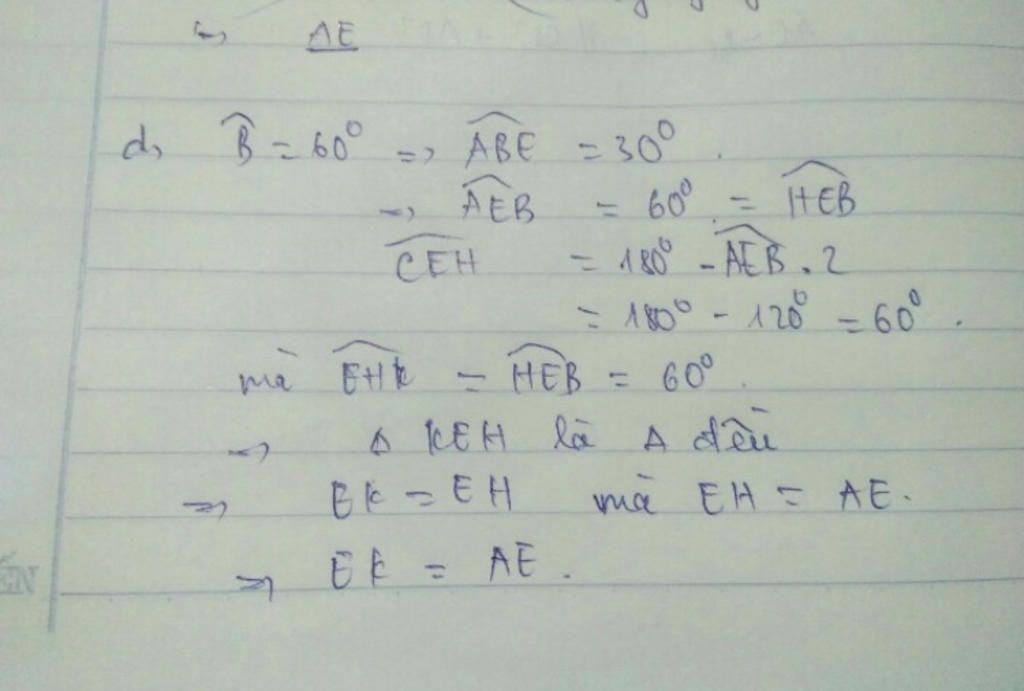 => AE
d, B̂ = 60⁰ => ABÊ = 30⁰.
=> AEB̂ = 60⁰ = HEB̂
CEĤ = 180⁰ - AEB̂ . 2
= 180⁰ - 120⁰ = 60⁰.
mà EHK̂ = HEB̂ = 60⁰.
=> Δ KEH là Δ đều
=> EK = EH mà EH = AE.
=> EK = AE.